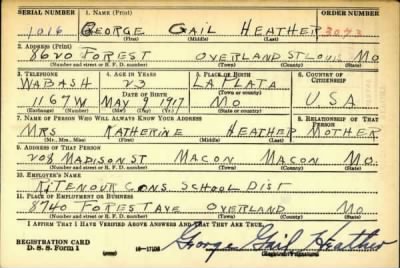 SERIAL NUMBER 1. NAME (Print) ORDER NUMBER
1016 GEORGE GAIL HEATHER 3073
(First) (Middle) (Last)
2. ADDRESS (Print)
8620 FOREST OVERLAND ST LOUIS MO
(Number and street or R. F. D. number) (Town) (County) (State)
3. TELEPHONE 4. AGE IN YEARS 5. PLACE OF BIRTH 6. COUNTRY OF CITIZENSHIP
WABASH 23 LA PLATA
DATE OF BIRTH (Town or county)
1167W MAY 9 1917 MO USA
(Exchange) (Number) (Mo.) (Day) (Yr.) (State or country)
7. NAME OF PERSON WHO WILL ALWAYS KNOW YOUR ADDRESS 8. RELATIONSHIP OF THAT PERSON
MRS KATHERINE HEATHER MOTHER
(Mr., Mrs., Miss) (First) (Middle) (Last)
9. ADDRESS OF THAT PERSON
208 MADISON ST MACON MACON MO.
(Number and street or R. F. D. number) (Town) (County) (State)
10. EMPLOYER'S NAME
RITENOUR CONS. SCHOOL DIST
11. PLACE OF EMPLOYMENT OR BUSINESS
8740 FOREST AVE OVERLAND MO
(Number and street or R. F. D. number) (Town) (County) (State)
I AFFIRM THAT I HAVE VERIFIED ABOVE ANSWERS AND THAT THEY ARE TRUE.
REGISTRATION CARD
D. S. S. Form 1 George Gail Heather